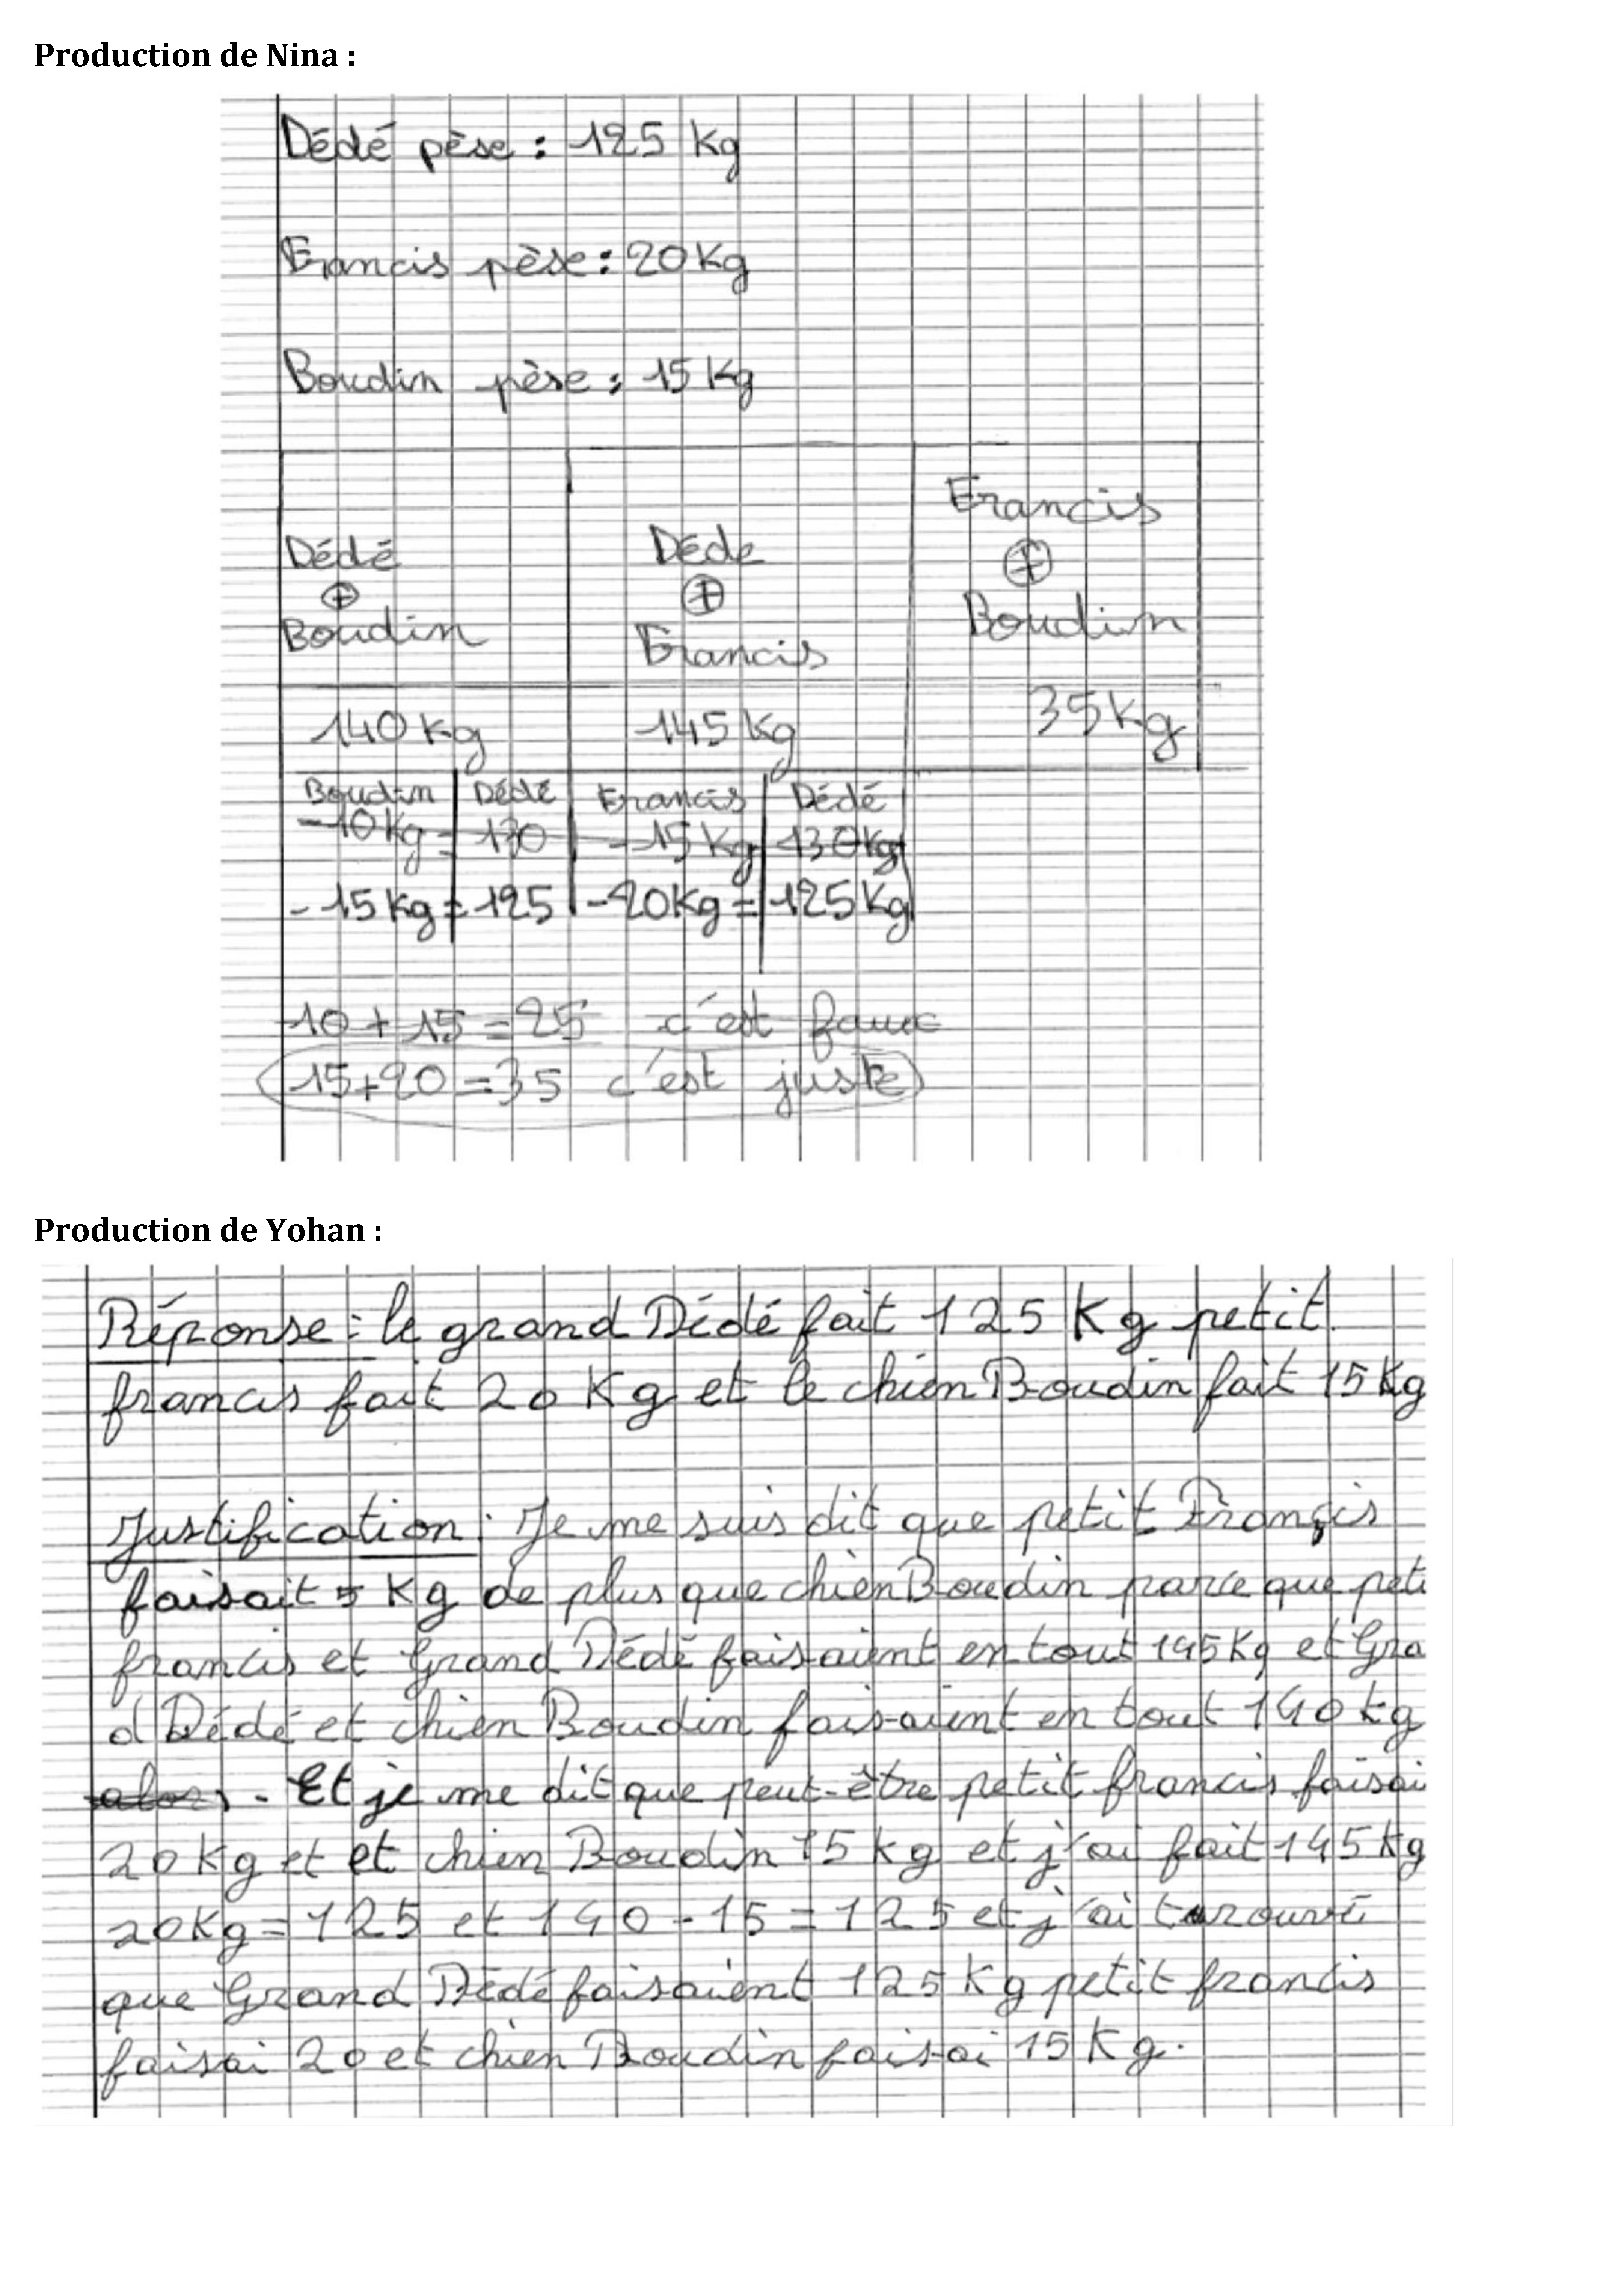 Production de Nina :
Dédé pèse : 125 kg
Francis pèse : 20 Kg
Boudin pèse : 15 Kg
Dédé
+
Boudin
Dédé
+
Francis
Francis
+
Boudin
140 kg
145 kg
35 kg
Boudin Dédé Francis Dédé
-10 Kg = 130 -15 Kg 130 kg
-15 kg = 125 -20 Kg = 125 Kg
10 + 15 = 25 c'est faux
15 + 20 = 35 c'est juste
Production de Yohan :
Réponse : le grand Dédé fait 125 Kg petit
francis fait 20 Kg et le chien Boudin fait 15 Kg
Justification : Je me suis dit que petit Françis
faisait 5 Kg de plus que chien Boudin parce que peti
francis et Grand Dédé faisaient en tout 145 Kg et Gra
d Dédé et chien Boudin faisaient en tout 140 kg
alors . Et je me dit que peut-être petit francis faisai
20 Kg et et chien Boudin 15 kg et j'ai fait 145 kg
20 Kg = 125 et 140 - 15 = 125 et j'ai trouvé
que Grand Dédé faisaient 125 Kg petit francis
faisai 20 et chien Boudin faisai 15 Kg.